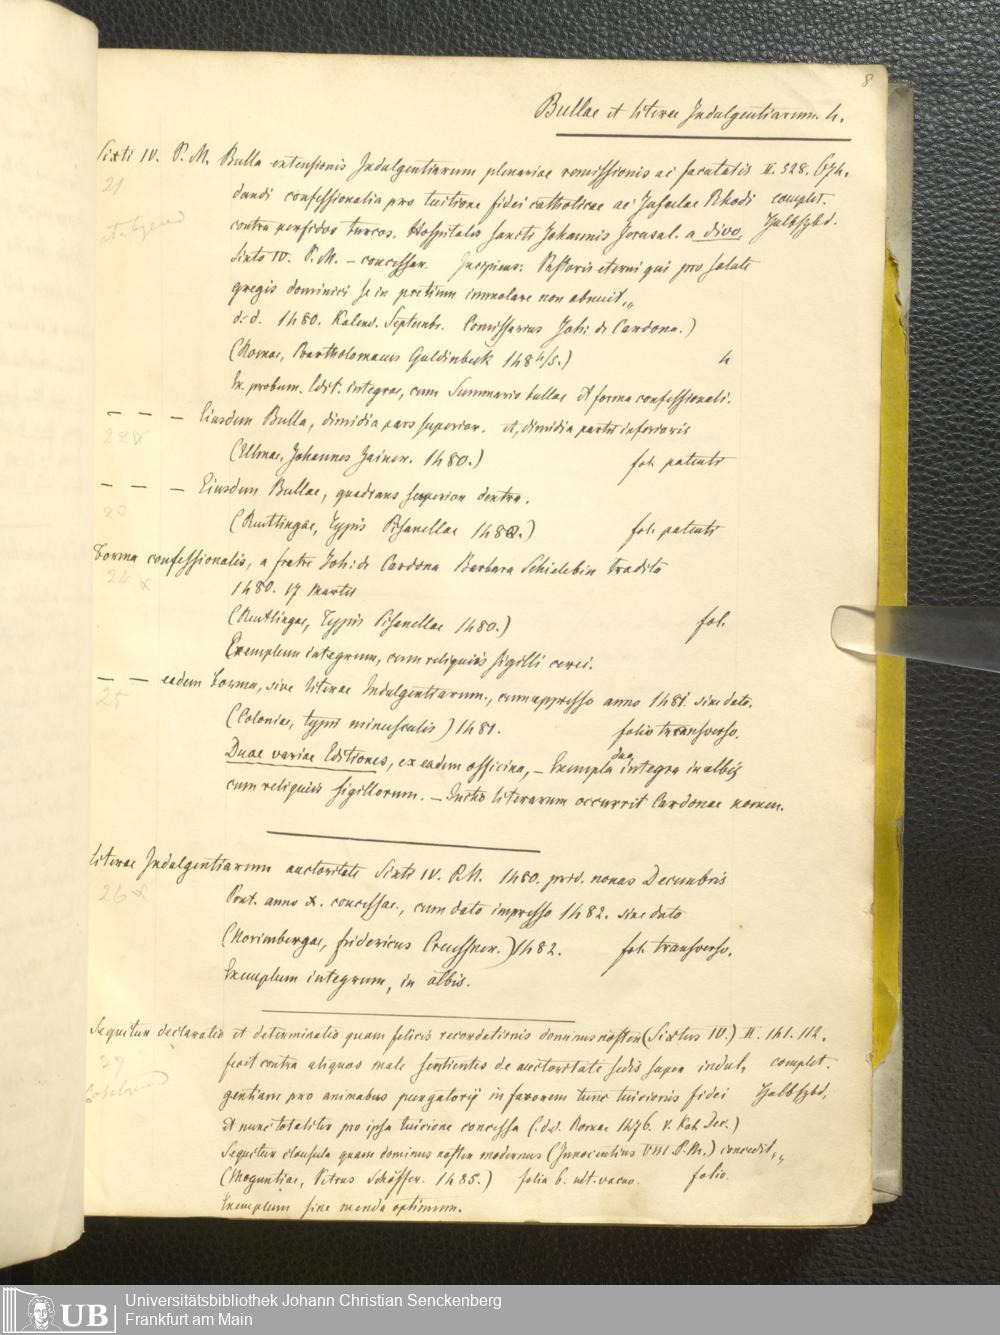 8
Bullae et literae Indulgentiarum. 4.
Sixti IV. P. M. Bulla extensionis Indulgentiarum plenariae remissionis ac facultatis II. 328. 674.
21
dandi confessionalia pro tuitione fidei catholicae ac Insulae Rhodi complet.
contra perfidos turcos. Hospitalis sancti Johannis Jerusal. a divo, Halbfzbd.
Sixto IV. P. M. – concessar. Incipiens: Pastoris eterni qui pro salute
gregis dominici se in pretium immolare non abnuit„
d. d. 1480. Kalend. Septembr. Comissarius Joh: de Cardona.)
(Romae, Bartholomaeus Guldinbeck 1484/5.) 4
Ex. probum. Edit. integrae, cum Summario bullae et forma confessionali.
— — — Eiusdem Bulla, dimidia pars superior. et, dimidia partis inferioris
22
(Ulmae, Johannes Zainer. 1480.) fol. patenti
— — — Eiusdem Bullae, quadrans superior dextra.
23
(Reutlingae, Typis Pisanellae 1480.) fol. patenti
Forma confessionalis, a fratre Joh: de Cardona Barbara Schielebin tradito
24
1480. 17 Martis
(Reutlingae, Typis Pisanellae 1480.) fol.
Exemplum integrum, cum reliquiis sigilli cerei.
— — eadem Forma, sive literae Indulgentiarum, cum appresso anno 1481. sine dato.
25
(Coloniae, typis minusculis) 1481. folio transverso.
Duae variae Editiones, ex eadem officina, – Exempla duo integra in albis
cum reliquiis sigillorum. – Initio literarum occurrit Cardonae nomen.
Literae Indulgentiarum auctoritate Sixti IV. P. M. 1480. prid. nonas Decembris
26
Pont. anno X. concessae, cum dato impresso 1482. sine dato
(Norimbergae, Fridericus Creussner.) 1482. fol. transverso.
Exemplum integrum, in albis.
Sequitur declaratio et determinatio quam felicis recordationis dominus noster (Sixtus IV.) II. 141. 112.
27
fecit contra aliquos male sentientes de auctoritate sedis super indul, complet.
gentiam pro animabus purgatorij in favorem tunc tuicionis fidei Halbfzbd.
et nunc totaliter pro ipsa tuicione concessa (d. d. Romae 1476. V. Kal. Dec.)
Sequitur clausula quam dominus noster modernus (Innocentius VIII P. M.) concedit„
(Moguntiae, Petrus Schöffer. 1485.) folia 6. ult. vacuo. folio.
Exemplum sine menda optimum.
UB
Universitätsbibliothek Johann Christian Senckenberg
Frankfurt am Main